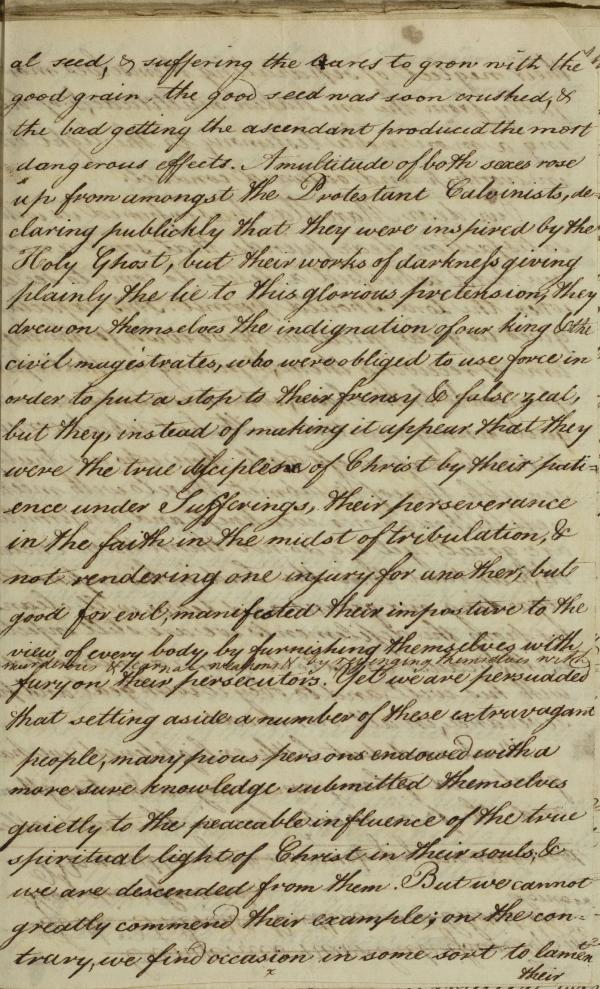 al seed, & suffering the tares to grow with the
good grain, the good seed was soon crushed, &
the bad getting the ascendant produced the most
dangerous effects. A multitude of both sexes rose
up from amongst the Protestant Calvinists, de-
claring publickly that they were inspired by the
Holy Ghost, but their works of darkness giving
plainly the lie to this glorious pretension, they
drew on themselves the indignation of our king & the
civil magistrates, who were obliged to use force in
order to put a stop to their frensy & false zeal,
but they, instead of making it appear that they
were the true disciples of Christ by their pati=
ence under Sufferings, their perseverance
in the faith in the midst of tribulation, &
not rendering one injury for another, but
good for evil, manifested their imposture to the
view of every body, by furnishing themselves with
murderous & carnal weapons & by revenging themselves with
fury on their persecutors. Yet we are persuaded
that setting aside a number of these extravagant
people, many pious persons endowed with a
more sure knowledge submitted themselves
quietly to the peaceable influence of the true
spiritual light of Christ in their souls, &
we are descended from them. But we cannot
greatly commend their example; on the con-
trary, we find occasion in some sort to lament
their